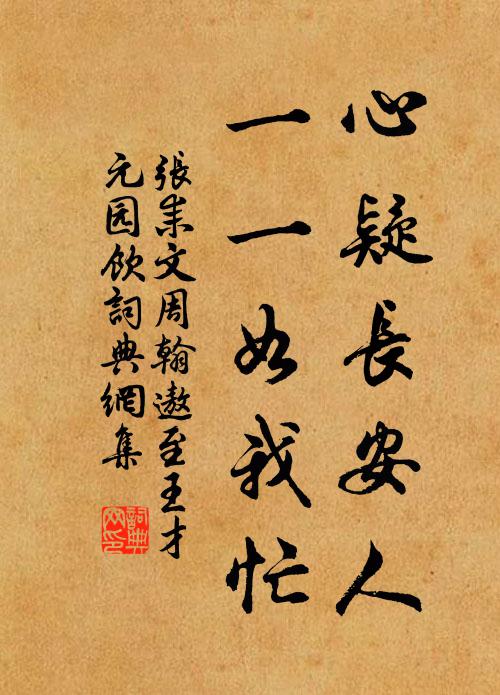 心疑長安人
一一如我忙
張耒文周翰遨至王才
元园飲詞典網集
詞典